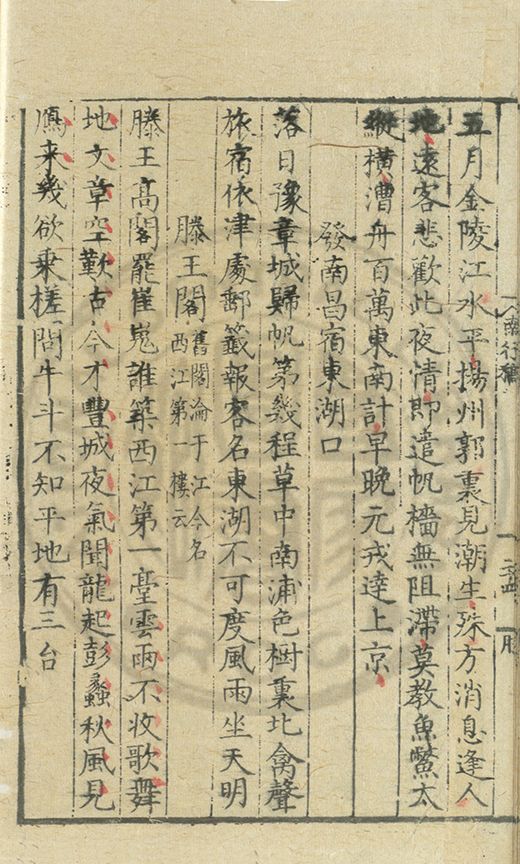 五月金陵江水平揚州郭裏見潮生殊方消息逢人
地遠客悲歡此夜情即遣帆檣無阻滯莫教魚鱉太
縱橫漕舟百萬東南計早晚元戎達上京
發南昌宿東湖口
落日豫章城歸帆第幾程草中南浦色樹裏北禽聲
旅宿依津處郵籤報客名東湖不可度風雨坐天明
滕王閣舊閣淪于江今名
西江第一樓云
滕王高閣罷崔嵬誰築西江第一臺雲雨不收歌舞
地文章空歎古今才豐城夜氣聞龍起彭蠡秋風見
鴈来幾欲乗槎問牛斗不知平地有三台